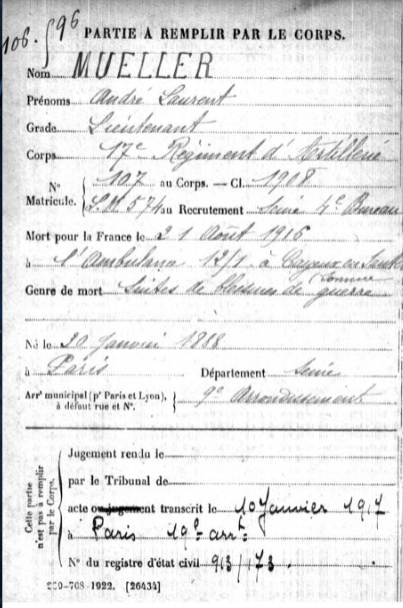 106. 96
PARTIE À REMPLIR PAR LE CORPS.
Nom MUELLER
Prénoms André Laurent
Grade Lieutenant
Corps 17e Régiment d'Artillerie
N° Matricule. { 107 au Corps. — Cl. 1908
au Recrutement Seine 4e Bureau
Mort pour la France le 21 Août 1916
à l'Ambulance à Cayeux en Santerre
Somme
Genre de mort Suites de blessures de guerre
Né le 20 Janvier 1888
à Paris Département Seine
Arrt municipal (pr Paris et Lyon), à défaut rue et N°. } 9e Arrondissement
Cette partie n'est pas à remplir par le Corps.
Jugement rendu le
par le Tribunal de
acte ou jugement transcrit le 10 Janvier 1917
à Paris arrt
N° du registre d'état civil 913/173
708-1922. [26434]